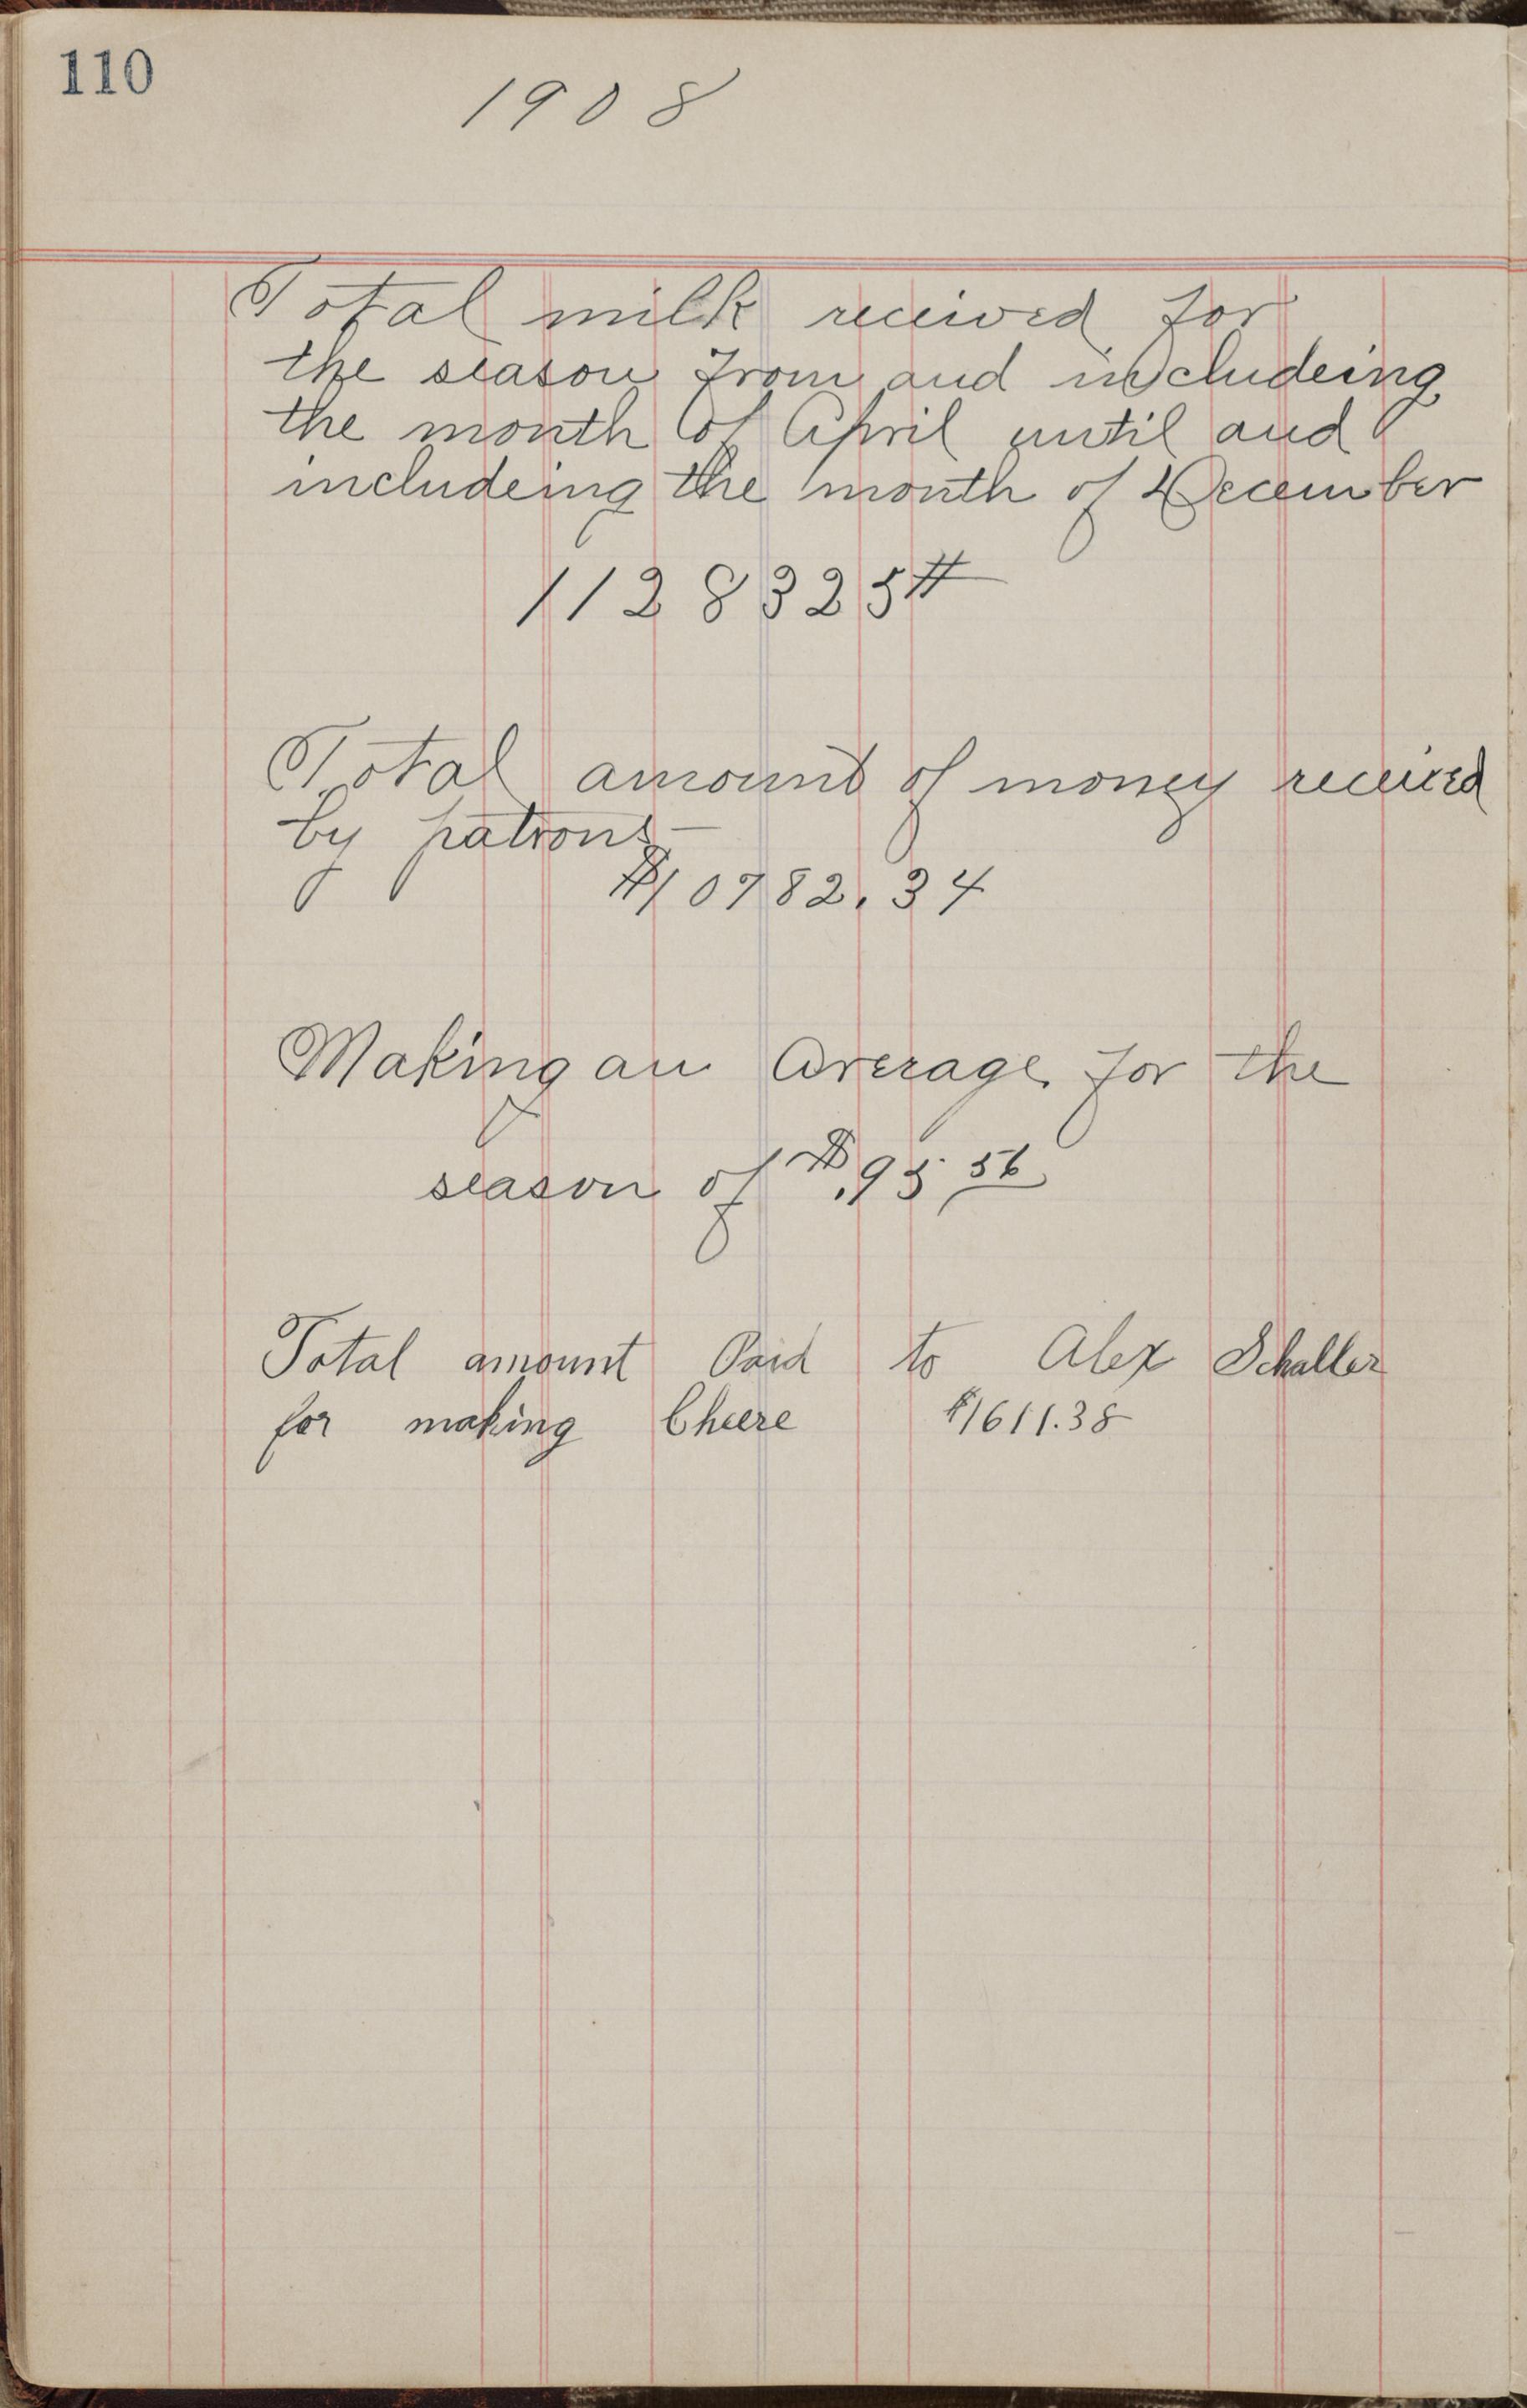 110
1908
Total milk received for
the season from and includeing
the month of April until and
includeing the month of December
1128325#
Total amount of money received
by patrons—
$10782.34
Making an Average for the
season of $.95 56
Total amount Paid to Alex Schaller
for making Cheese $1611.38